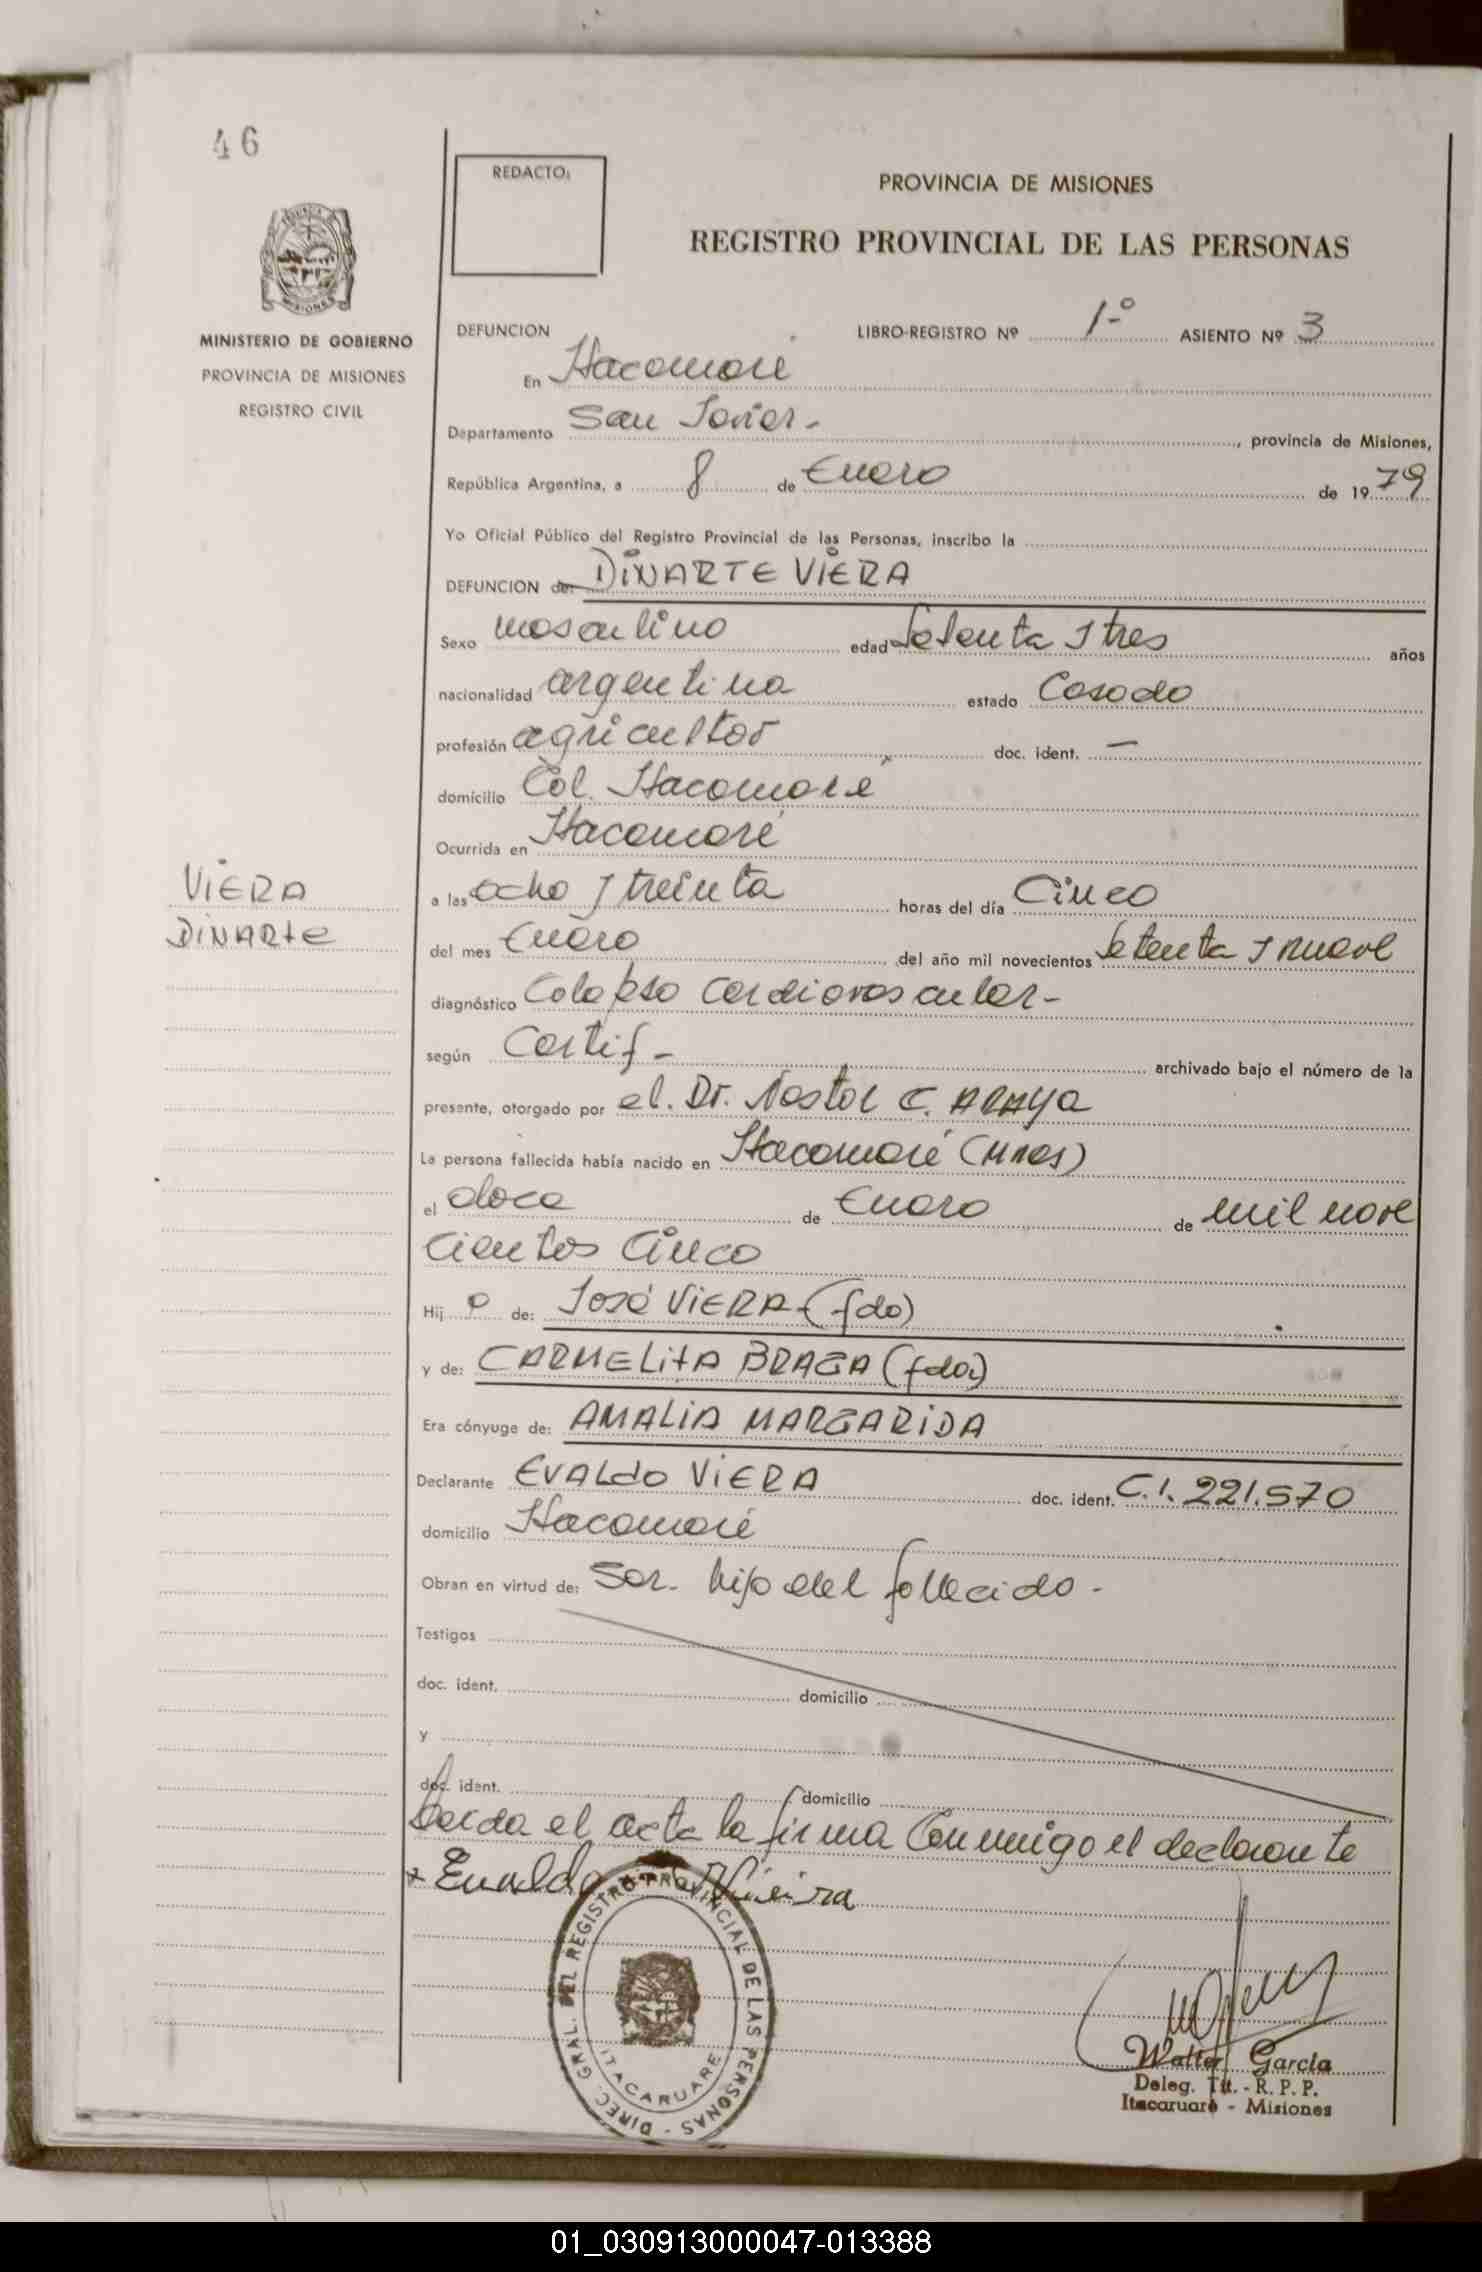 46
REDACTO:
PROVINCIA DE MISIONES
REGISTRO PROVINCIAL DE LAS PERSONAS
MISIONES
MINISTERIO DE GOBIERNO
PROVINCIA DE MISIONES
REGISTRO CIVIL
DEFUNCION LIBRO-REGISTRO Nº 1º ASIENTO Nº 3
En Itacaruaré
Departamento San Javier - , provincia de Misiones,
República Argentina, a 8 de Enero de 1979
Yo Oficial Público del Registro Provincial de las Personas, inscribo la
DEFUNCION de: DINARTE VIERA
Sexo masculino edad Setenta y tres años
nacionalidad argentina estado Casado
profesión agricultor doc. ident. —
domicilio Col. Itacaruaré
Ocurrida en Itacaruaré
VIERA
DINARTE
a las ocho y treinta horas del día Cinco
del mes Enero del año mil novecientos Setenta y nueve
diagnóstico Colapso Cardiovascular -
según Certif - archivado bajo el número de la
presente, otorgado por el. Dr. Nestor C. ARAYA
La persona fallecida había nacido en Itacaruaré (Mnes)
el doce de Enero de mil nove
cientos Cinco
Hij o de: José VIERA (fdo)
y de: CARMELITA BRAGA (fda)
Era cónyuge de: AMALIA MARGARIDA
Declarante EVALDO VIERA doc. ident. C.I. 221.570
domicilio Itacaruaré
Obran en virtud de: Ser. hijo del fallecido -
Testigos
doc. ident. domicilio
y
doc. ident. domicilio
Leida el acta la firma Conmigo el declarante
x Evaldo Vieira
DIREC. GRAL. DEL REGISTRO PROVINCIAL DE LAS PERSONAS -
ITACARUARE
Walter Garcia
Deleg. Tit. - R. P. P.
Itacaruaré - Misiones
01_030913000047-013388